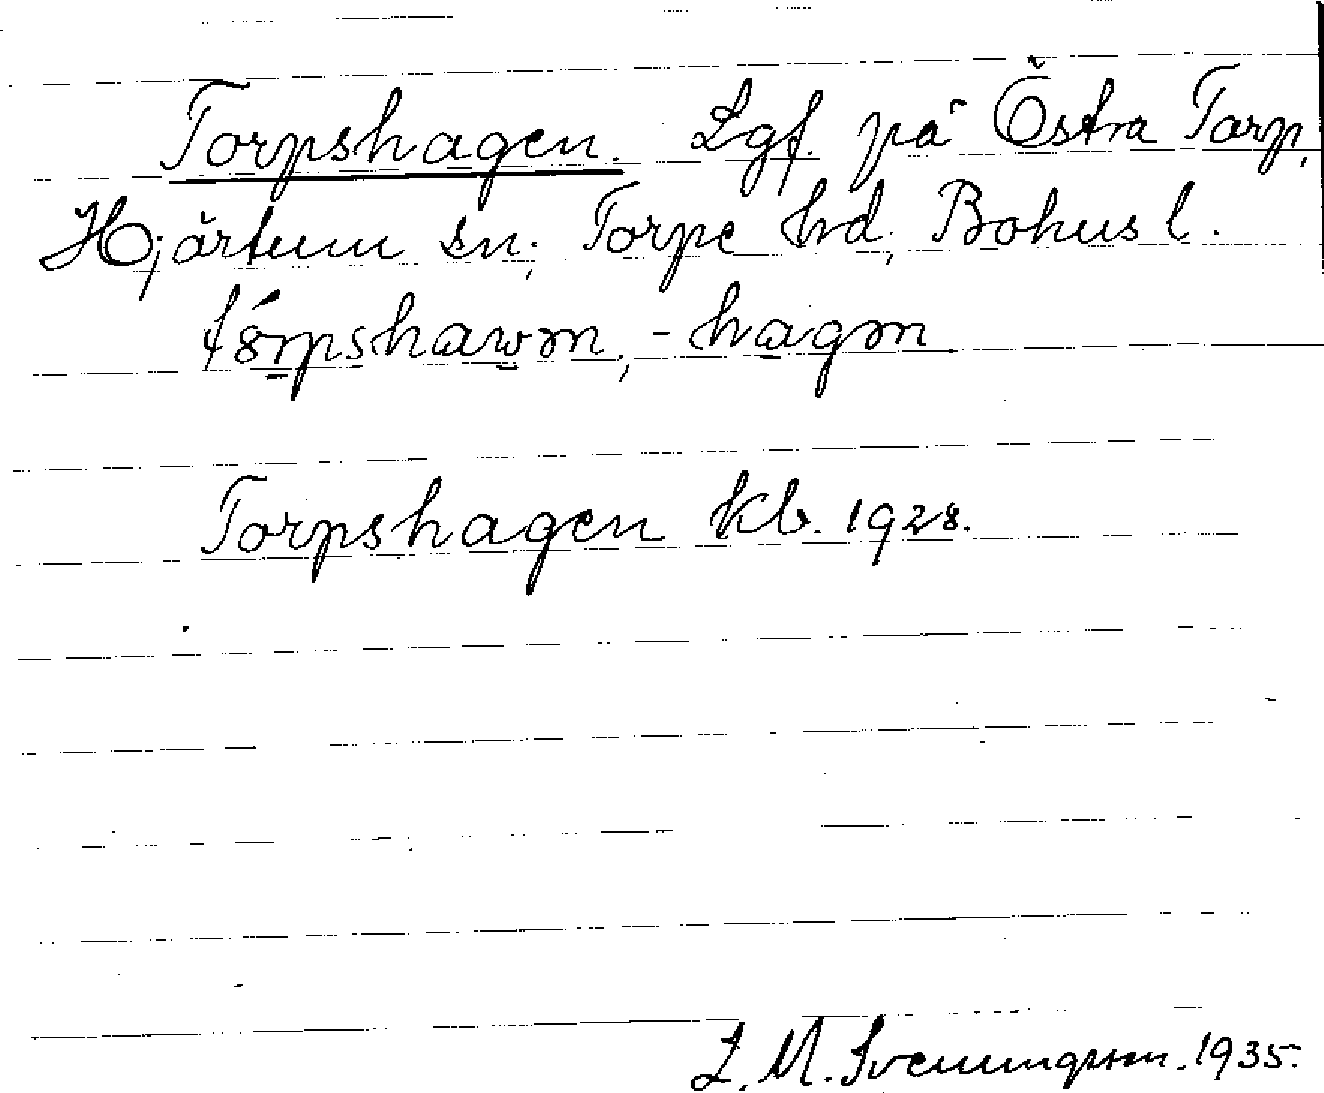 Torpshagen. Lgf. på Östra Torp,
Hjärtum sn; Torpe hd, Bohus l.
-hagən
Torpshagen kb. 1928.
L. M. Svenungsson. 1935.